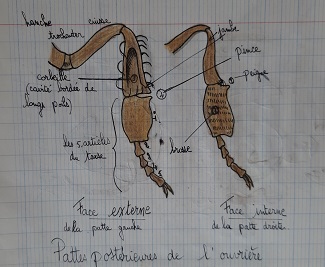 hanche
trochanter
cuisse
jambe
pince
peigne
corbeille
(cavité bordée de
longs poils)
brosse
les 5 articles
du tarse
Face externe
de la patte gauche
Face interne
de la patte droite
Pattes postérieures de l'ouvrière